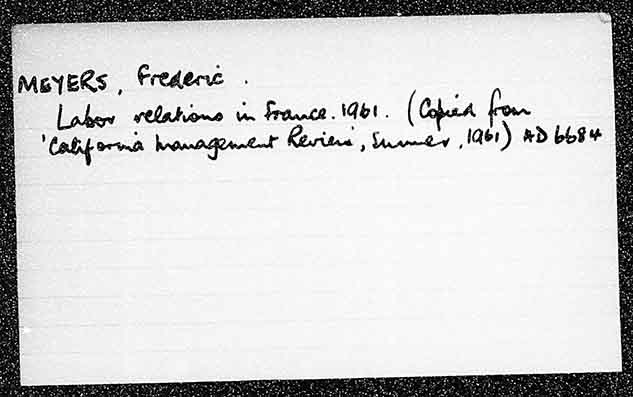 MEYERS, Frederic.
Labor relations in France. 1961. (Copied from
'California Management Review', Summer, 1961) AD 6684